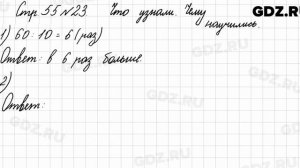 Стр. 55 № 23. Что узнали. Чему
научились
1) 60 : 10 = 6 (раз)
Ответ: в 6 раз больше
2)
Ответ:
GDZ.RU